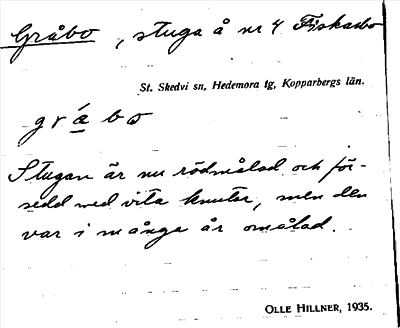 Gråbo, stuga å nr 4 Fiskarbo
St. Skedvi sn, Hedemora tg, Kopparbergs län.
g r á b o
Stugan är nu rödmålad och för-
sedd med vita knutar, men den
var i många år omålad.
OLLE HILLNER, 1935.